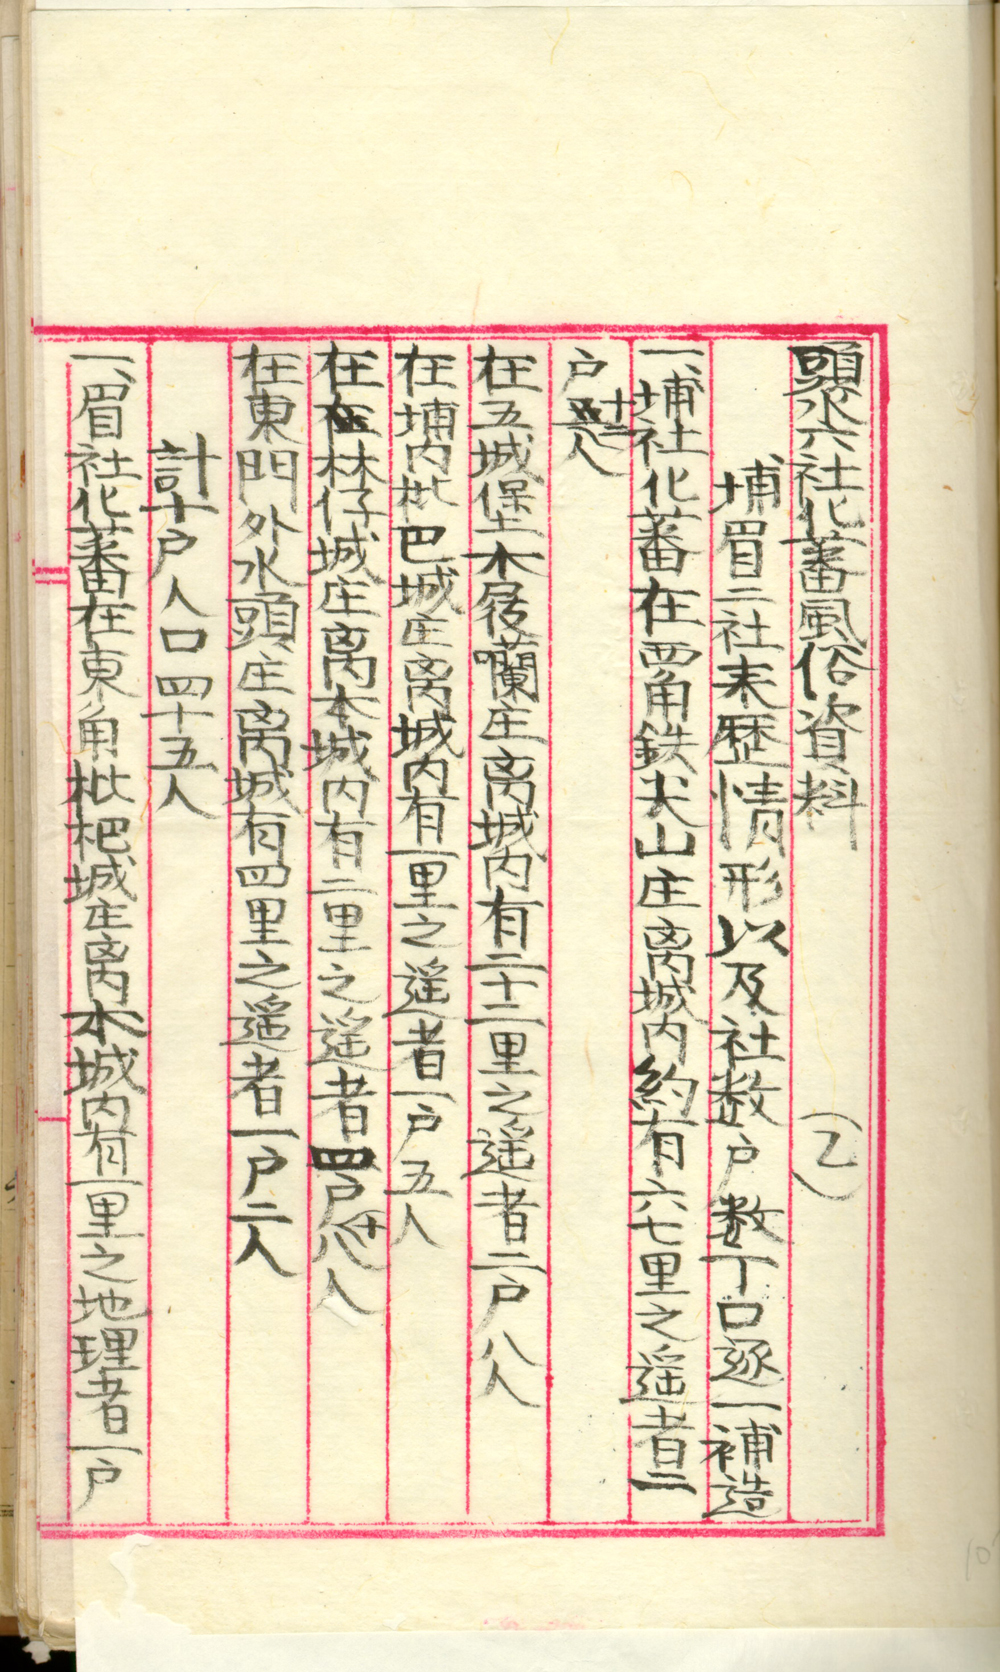 頭水六社化蕃風俗資料 (乙)
埔眉二社来歷情形以及社数户数丁口逐一補造
一、埔社化蕃在西角鉄尖山庄离城内約有六七里之遥者二
户十二人
在五城堡木屐囒庄离城内有二十二里之遥者二户八人
在埔内枇巴城庄离城内有一里之遥者一户五人
在林仔城庄离本城内有二里之遥者四户十八人
在東門外水頭庄离城有四里之遥者一户二人
計十户人口四十五人
一、眉社化蕃在東角枇杷城庄离本城内有一里之地理者一户